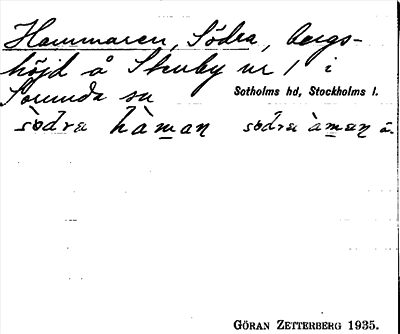 Hammaren, Södra, bergs-
höjd å Skuby nr 1 i
Sorunda sn
Sotholms hd, Stockholms l.
sö̀dra hàman södra àman ä.
GÖRAN ZETTERBERG 1935.